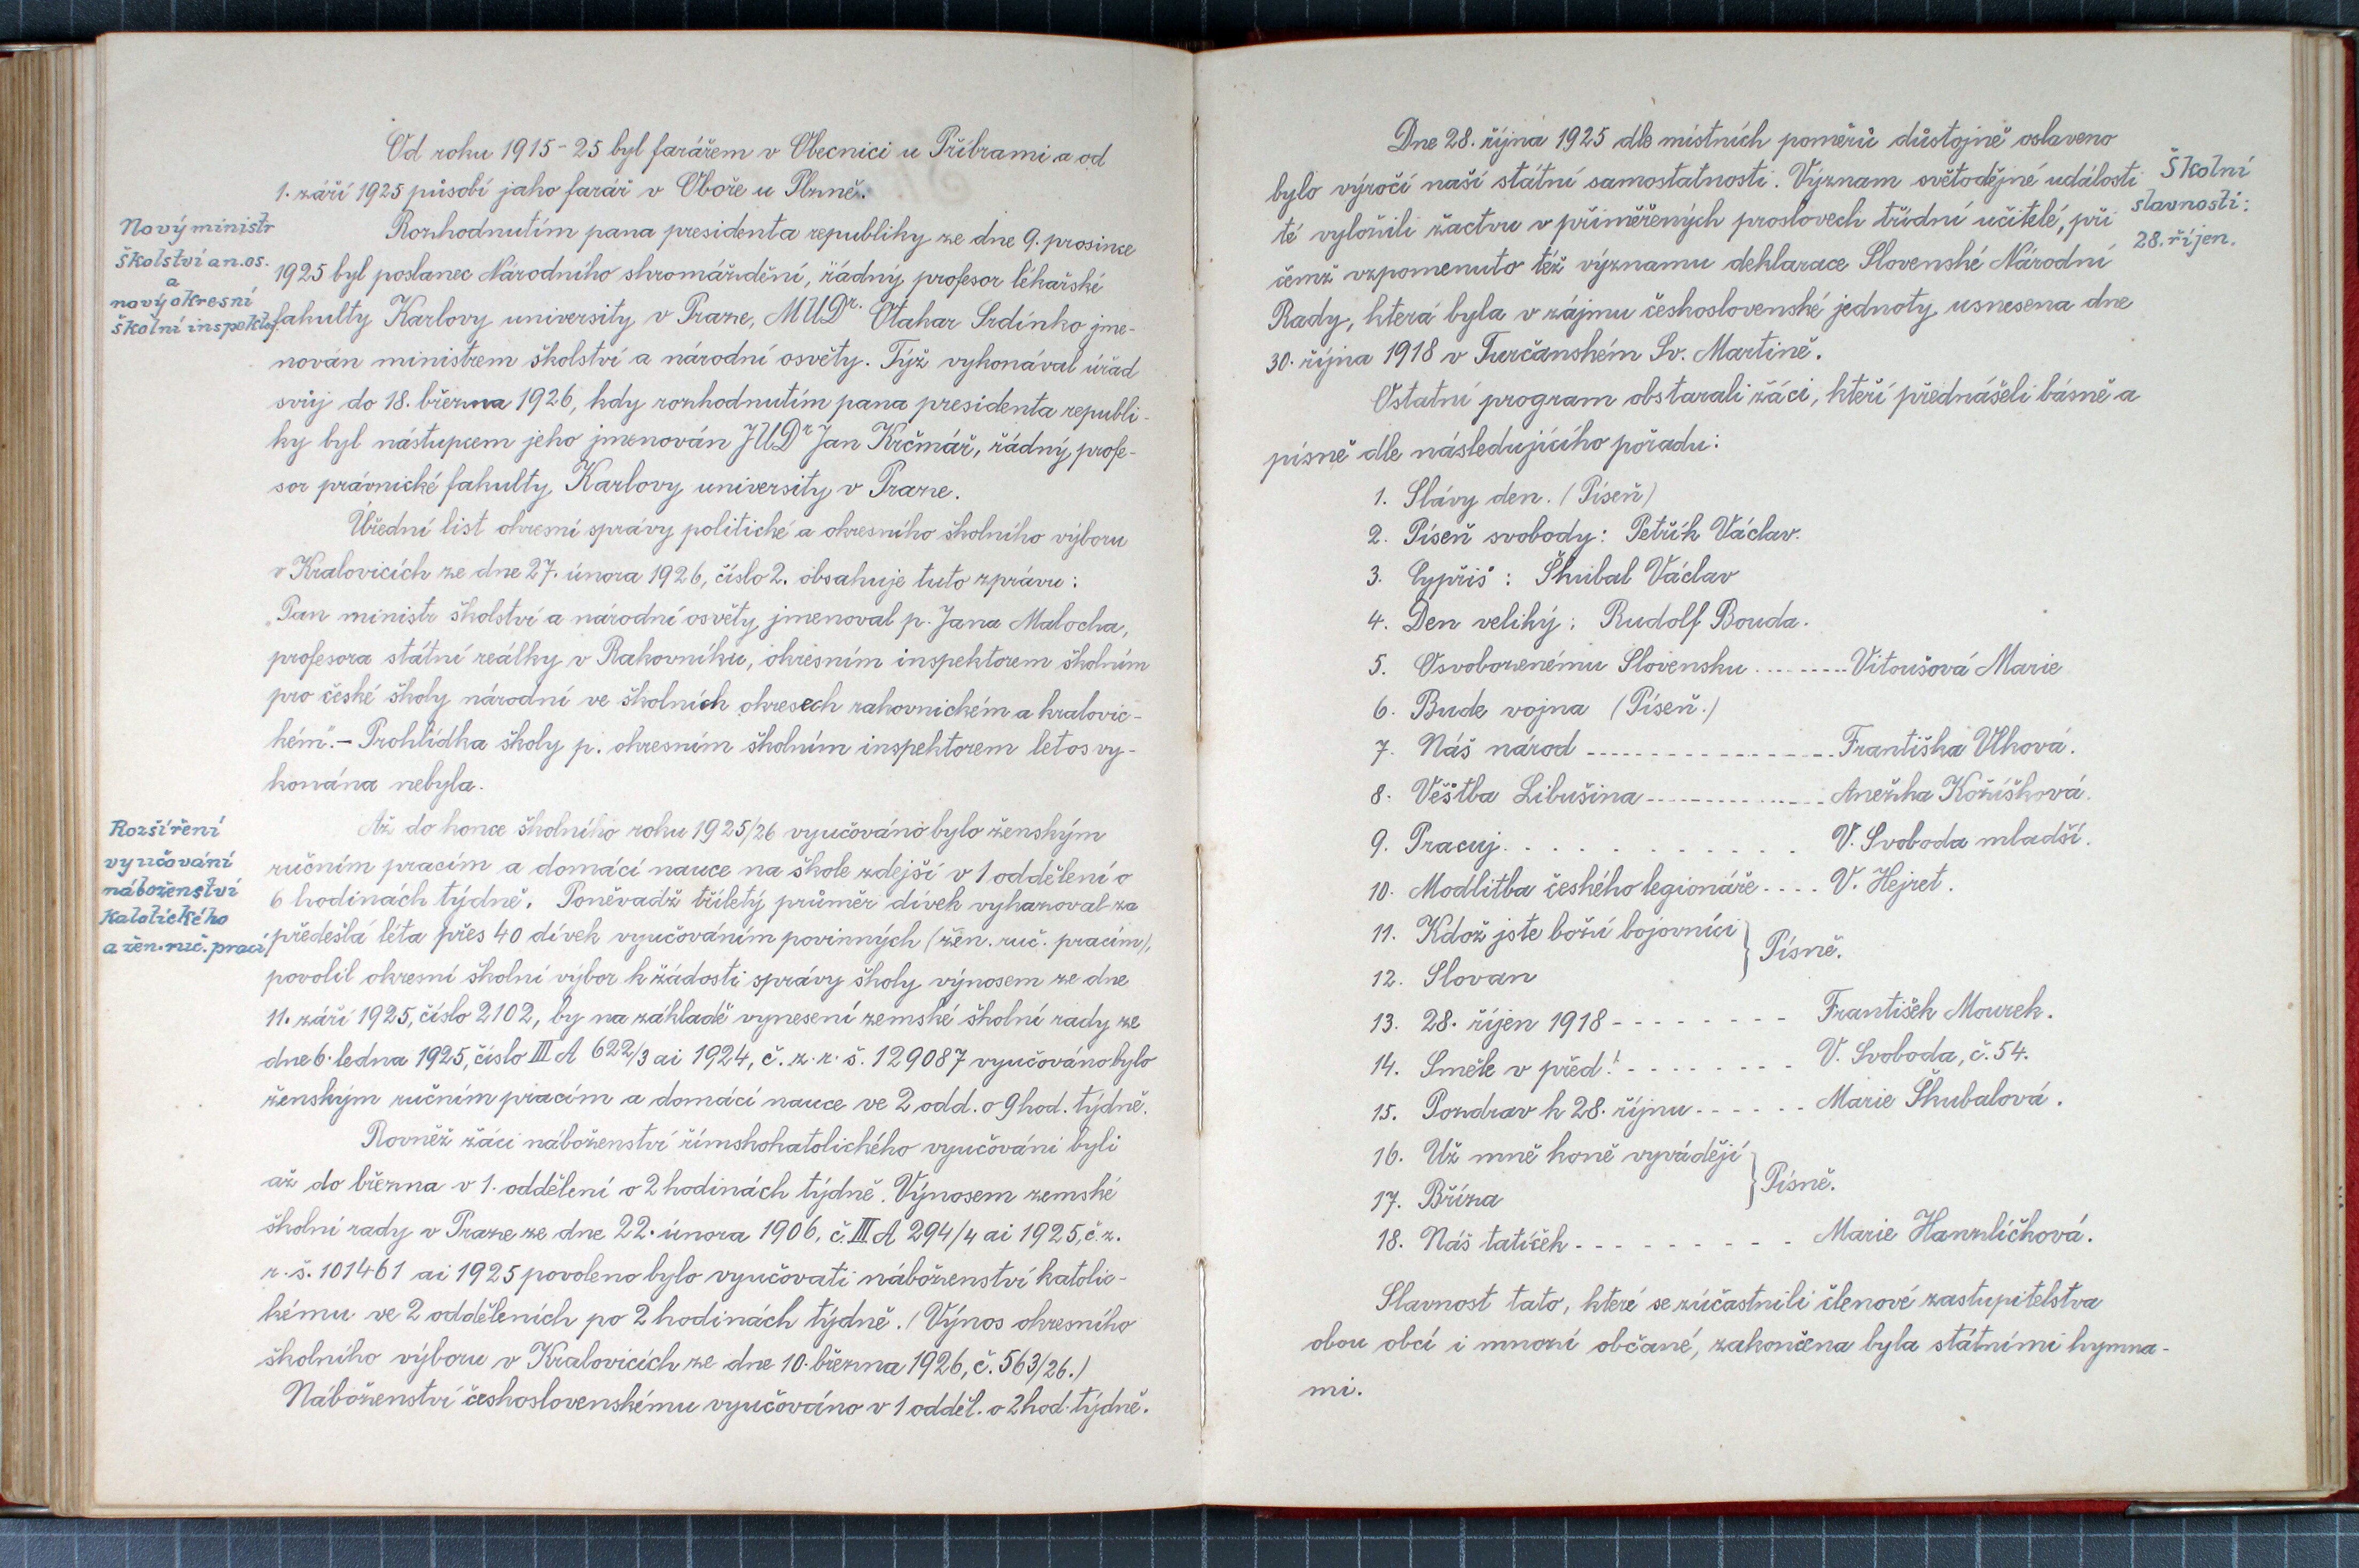 Od roku 1915-25 byl farářem v Obecnici u Příbrami a od
1. září 1925 působí jako farář v Oboře u Plzně.
Nový ministr
školství a n. os.
a
nový okresní
školní inspektor.
Rozhodnutím pana presidenta republiky ze dne 9. prosince
1925 byl poslanec Národního shromáždění, řádný profesor lékařské
fakulty Karlovy university v Praze, MUDr. Otakar Srdínko jme-
nován ministrem školství a národní osvěty. Týž vykonával úřad
svůj do 18. března 1926, kdy rozhodnutím pana presidenta republi-
ky byl nástupcem jeho jmenován JUDr Jan Krčmář, řádný profe-
sor právnické fakulty Karlovy university v Praze.
Úřední list okresní správy politické a okresního školního výboru
v Kralovicích ze dne 27. února 1926, číslo 2. obsahuje tuto zprávu:
„Pan ministr školství a národní osvěty jmenoval p. Jana Malocha,
profesora státní reálky v Rakovníku, okresním inspektorem školním
pro české školy národní ve školních okresech rakovnickém a kralovic-
kém“. - Prohlídka školy p. okresním školním inspektorem letos vy-
konána nebyla.
Rozšíření
vyučování
náboženství
katolického
a žen. ruč. prací
Až do konce školního roku 1925/26 vyučováno bylo ženským
ručním pracím a domácí nauce na škole zdejší v 1 oddělení o
6 hodinách týdně. Poněvadž tříletý průměr dívek vykazoval za
předešlá léta přes 40 dívek vyučováním povinných (žen. ruč. pracím),
povolil okresní školní výbor k žádosti správy školy výnosem ze dne
11. září 1925, číslo 2102, by na základě vynesení zemské školní rady ze
dne 6. ledna 1925, číslo III A 622/3 ai 1924, č. z. r. š. 129087 vyučováno bylo
ženským ručním pracím a domácí nauce ve 2 odd. o 9 hod. týdně.
Rovněž žáci náboženství římskokatolického vyučováni byli
až do března v 1. oddělení o 2 hodinách týdně. Výnosem zemské
školní rady v Praze ze dne 22. února 1906, č. III A 294/4 ai 1925, č. z.
r. š. 101461 ai 1925 povoleno bylo vyučovati náboženství katolic-
kému ve 2 odděleních po 2 hodinách týdně. (Výnos okresního
školního výboru v Kralovicích ze dne 10. března 1926, č. 563/26.)
Náboženství československému vyučováno v 1 odděl. o 2 hod. týdně.
Dne 28. října 1925 dle místních poměrů důstojně oslaveno
bylo výročí naší státní samostatnosti. Význam světodějné události
té vyložili žactvu v přiměřených proslovech třídní učitelé, při
čemž vzpomenuto též významu deklarace Slovenské Národní
Rady, která byla v zájmu československé jednoty usnesena dne
30. října 1918 v Turčanském Sv. Martině.
Školní
slavnosti:
28. říjen.
Ostatní program obstarali žáci, kteří přednášeli básně a
písně dle následujícího pořadu:
1. Slávy den. (Píseň)
2. Píseň svobody: Petřík Václav.
3. Cypřiš: Škubal Václav
4. Den veliký: Rudolf Bouda.
5. Osvobozenému Slovensku ......... Vitoušová Marie
6. Bude vojna (Píseň.)
7. Náš národ ---------------- Františka Vlková.
8. Věštba Libušina ------------- Anežka Kožíšková.
9. Pracuj . . . . . . . . . . . V. Svoboda mladší.
10. Modlitba českého legionáře .... V. Hejret.
11. Kdož jste boží bojovníci } Písně.
12. Slovan
13. 28. říjen 1918 - - - - - - - - František Mourek.
14. Směle v před! - - - - - - - - V. Svoboda, č. 54.
15. Pozdrav k 28. říjnu - - - - - - Marie Škubalová.
16. Už mně koně vyvádějí } Písně.
17. Bříza
18. Náš tatíček - - - - - - - - - Marie Hanzlíčková.
Slavnost tato, které se zúčastnili členové zastupitelstva
obou obcí i mnozí občané, zakončena byla státními hymna-
mi.